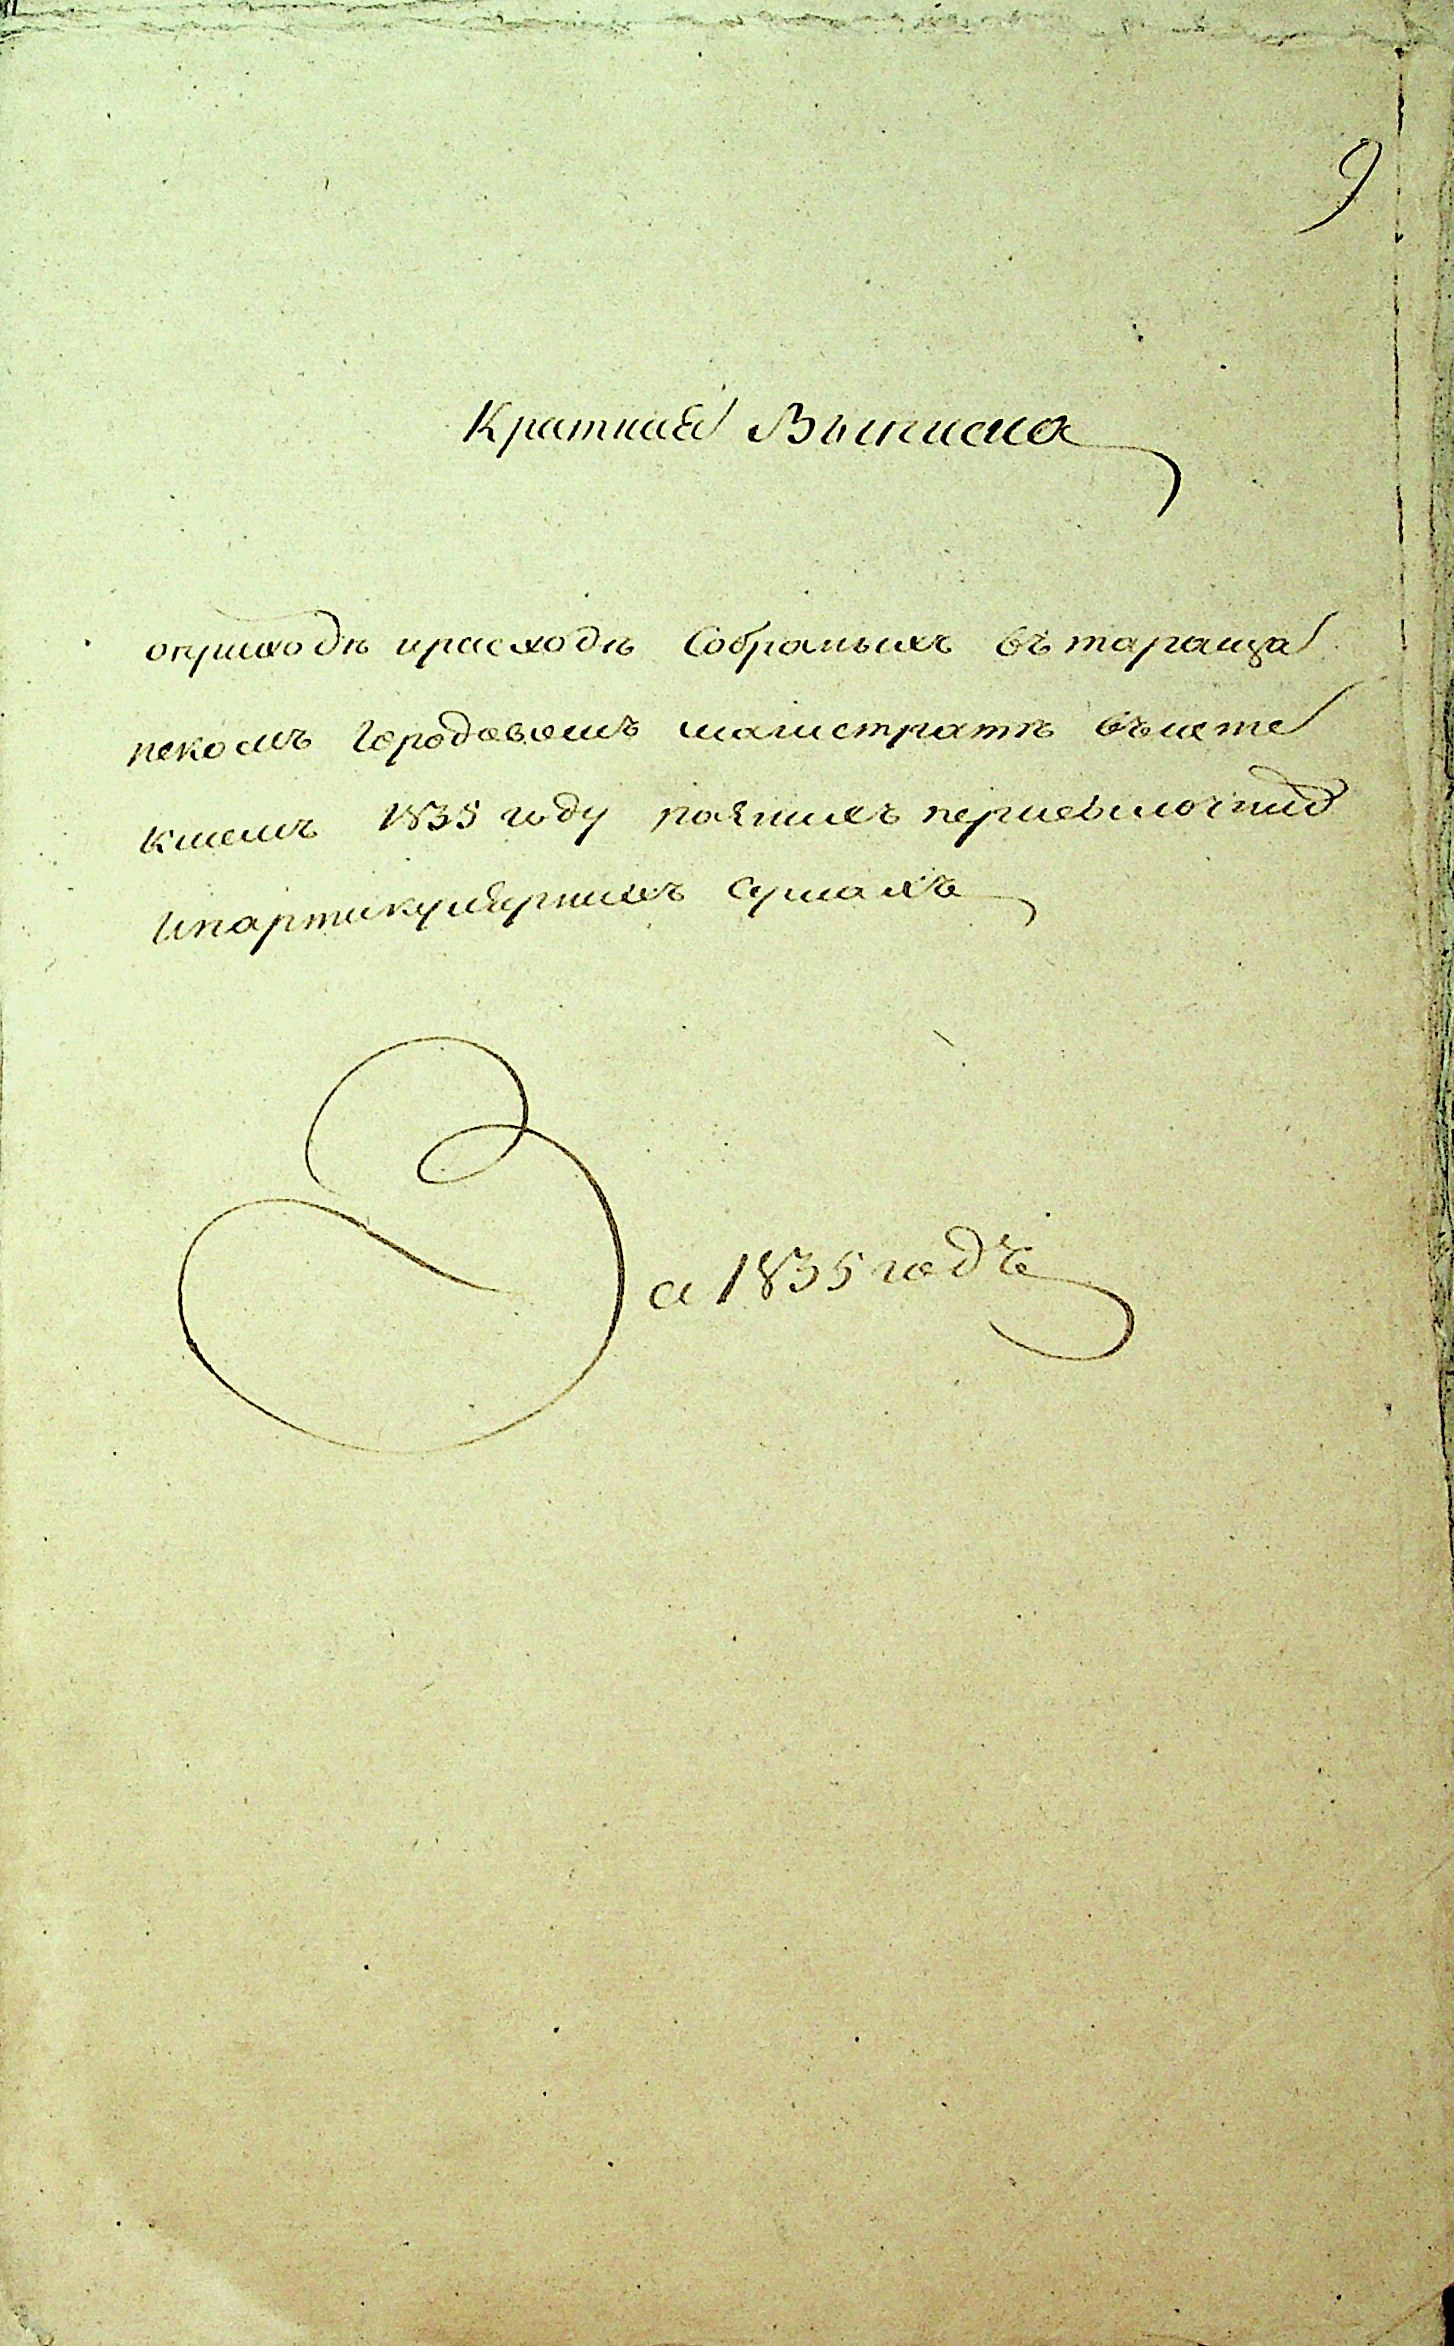 9
Краткая Выписка
оприходѣ ирасходѣ Собраныхъ вътараща
нскомъ Городовомъ магистратѣ въисте
кшемъ 1835 году разныхъ
ипартикулярныхъ Сумахъ
За 1835 годъ